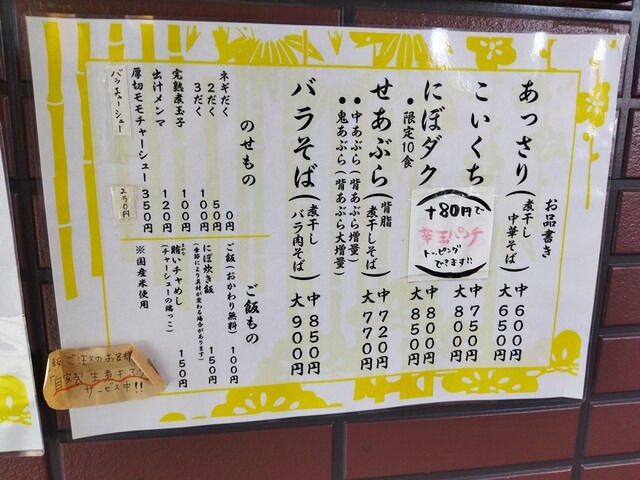 お品書き
あっさり(煮干し中華そば) 中600円 大650円
こいくち 中750円 大800円
にぼダク 中800円 大850円
●限定10食
+80円で
辛玉パンチ
トッピング
できます!!
せあぶら(背脂煮干しそば) 中720円 大770円
●中あぶら(背あぶら増量)
●鬼あぶら(背あぶら大増量)
バラそば(煮干しバラ肉そば) 中850円 大900円
のせもの
ネギだく 0円
2だく 50円
3だく 100円
完熟煮玉子 100円
出汁メンマ 120円
厚切モモチャーシュー 350円
バラチャーシュー 250円
ご飯もの
ご飯(おかわり無料) 100円
にぼ炊き飯 150円
(季節により具材が変わる場合があります)
賄いチャめし 150円
(チャーシューの端っこ)
※国産米使用
ご注文のお客様
「自家製 生煮干
サービス中!!